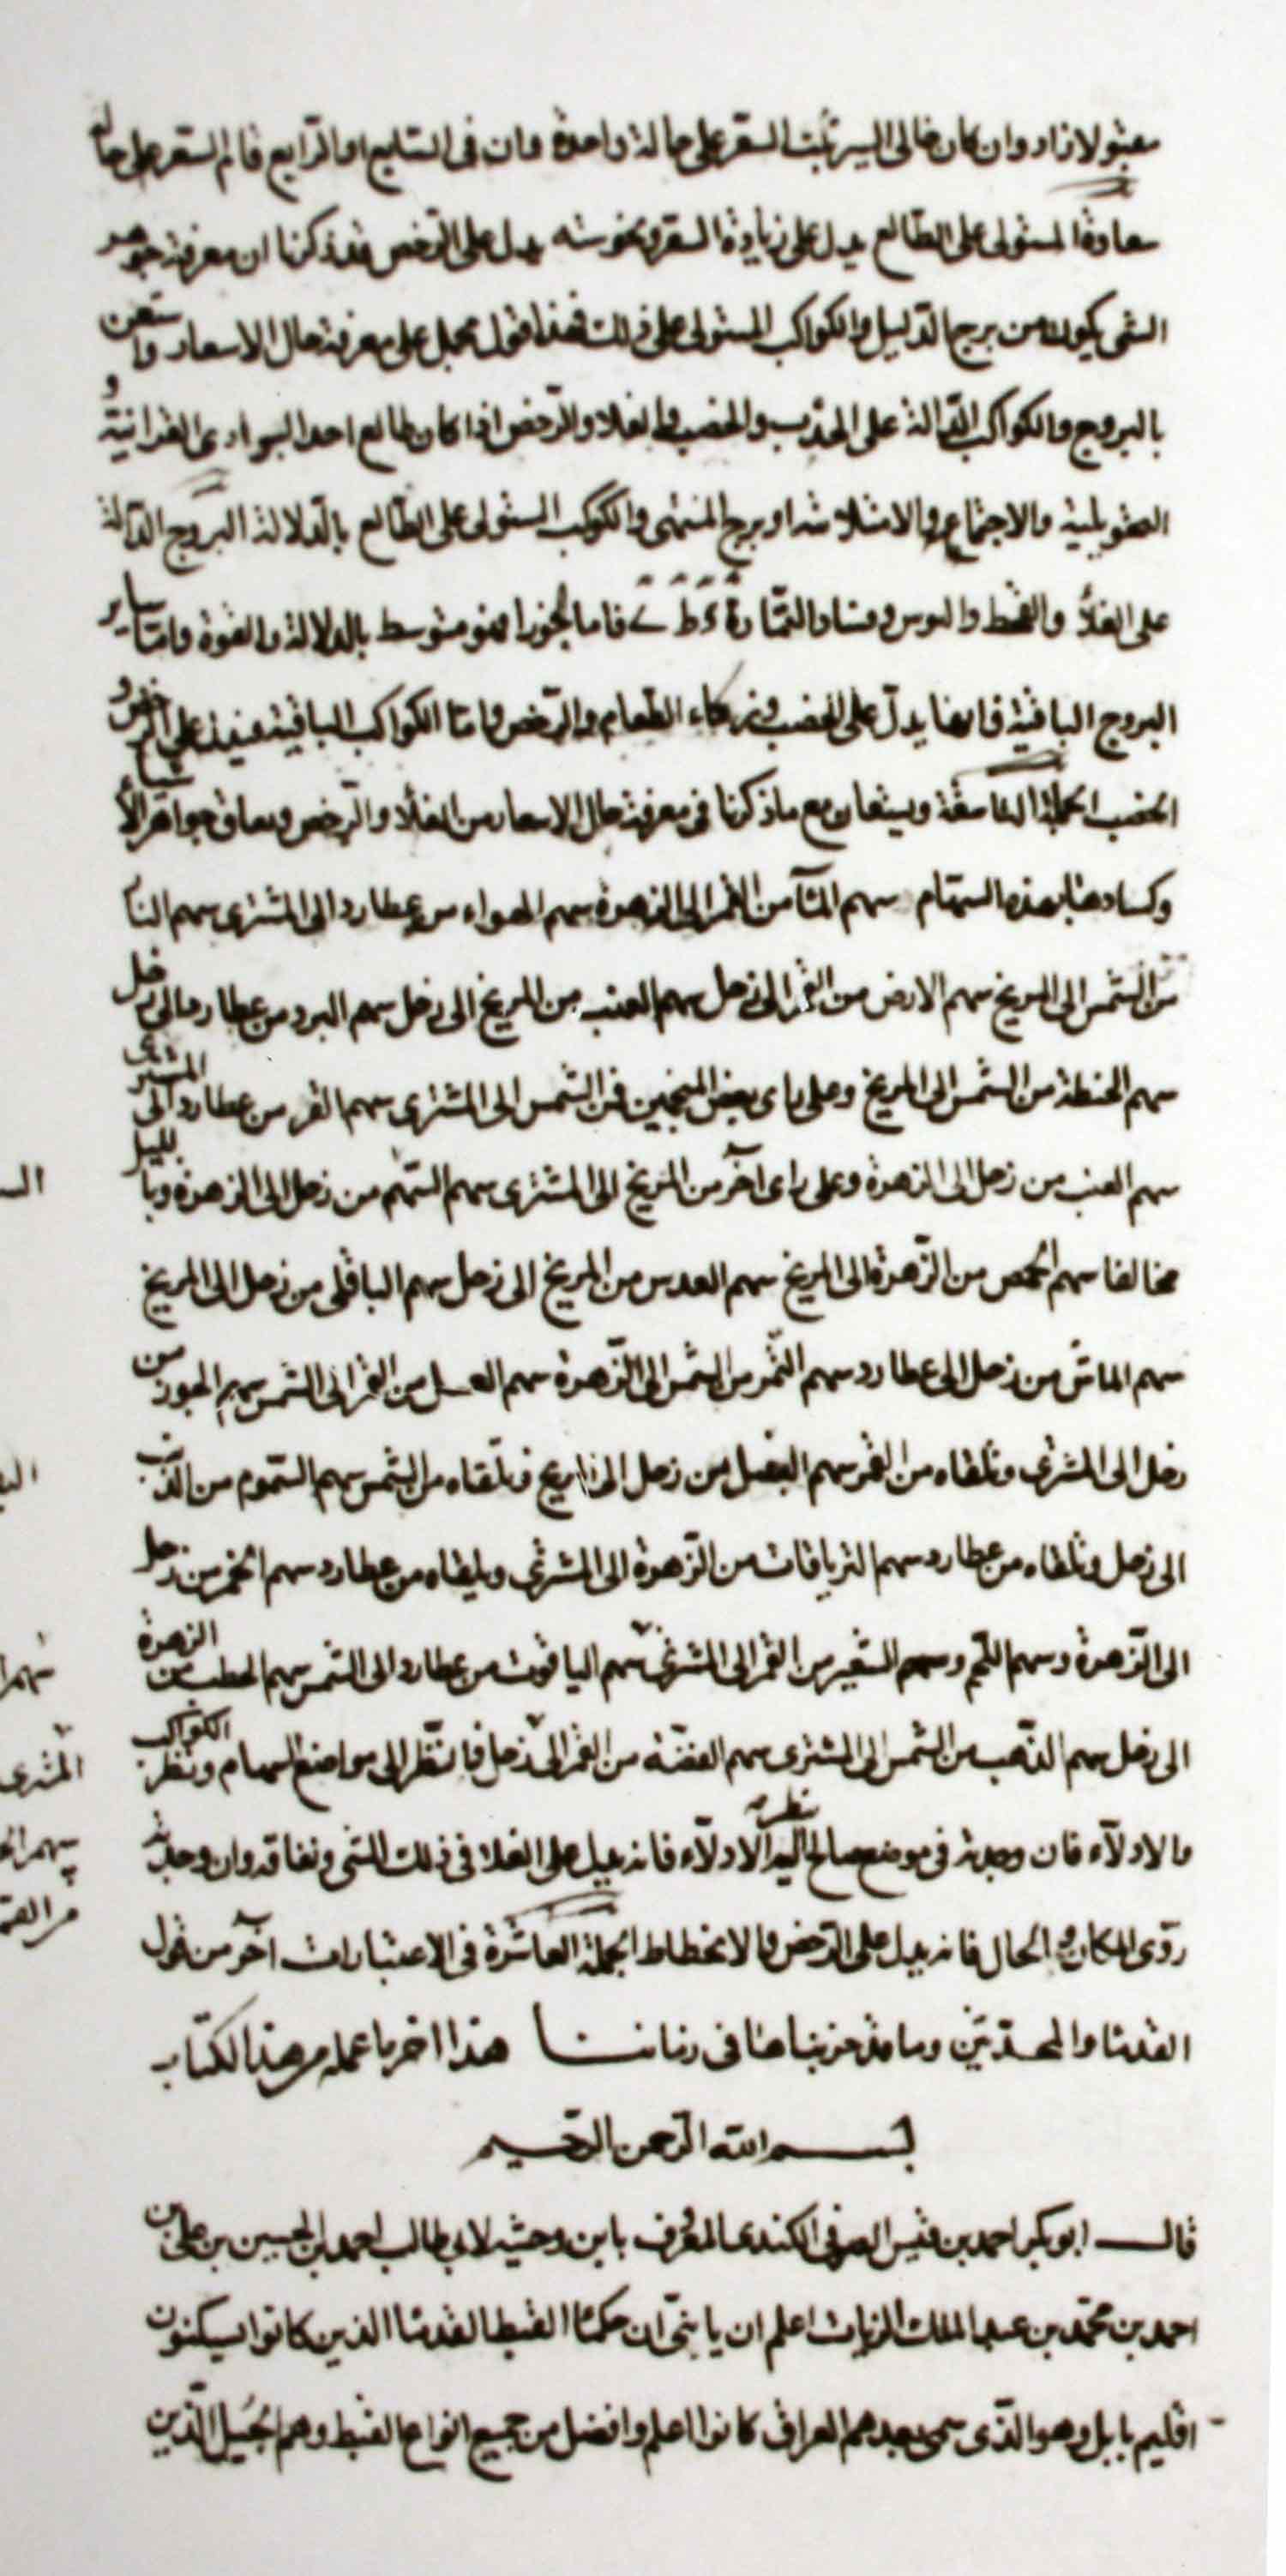 مقبولا زاد وان كان خالى السير ثبت السعر على حالة واحدة وان فى السابع او الرابع قائم السعر على حاله
سعادة المستولى على الطالع يدل على زيادة السعر ونحوسته يدل على الرخص فقد ذكرنا ان معرفة جوهر
الشى يكون من برج الدليل والكواكب المستولى على ذلك فهذا قول مجمل على معرفة حال الاسعار واستعن
بالبروج والكواكب الدالة على الجدب والخصب والغلا والرخص اذا كان طالع احد البوادى القرانية و
التحويلية والاجتماع والامتلا منه او برج المنتهى والكوكب المستولى على الطالع بالدلالة البروج الدالة
على الغلا والقحط فاما الجوزا فهو متوسط بالدلالة والقوة واما ساير
البروج الباقية فانها يدل على الخصب وزكاء الطعام والرخص واما الكواكب الباقية فيدل على الرخص و
الخصب الجملة التاسعة ويستعان مع ما ذكرنا فى معرفة حال الاسعار من الغلا والرخص ونفاق جواهر الاشيا
وكسادها بهذه السهام سهم الما من القمر الى الزهرة سهم الهواء من عطارد الى المشترى سهم النار
من الشمس الى المريخ سهم الارض من القمر الى زحل سهم العنب من المريخ الى زحل سهم البرد من عطارد الى زحل
سهم الحنطة من الشمس الى المريخ وعلى راى بعض المنجمين فمن الشمس الى المشترى سهم القر من عطارد الى المشترى
سهم العنب من زحل الى الزهرة وعلى راى آخر من المريخ الى المشترى سهم السمسم من زحل الى الزهرة وبالليل
مخالفا سهم الحمص من الزهرة الى المريخ سهم العدس من المريخ الى زحل سهم الباقلى من زحل الى المريخ
سهم الماش من زحل الى عطارد سهم التمر من الشمس الى الزهرة سهم العسل من القمر الى الشمس سهم الجوز من
زحل الى المشرى وتلقاه من القمر سهم البصل من زحل الى المريخ وتلقاه من الشمس سهم السموم من الذنب
الى زحل وتلقاه من عطارد سهم الترياقات من الزهرة الى المشترى ويلقاه من عطارد سهم الخمر من زحل
الى الزهرة وسهم اللحم وسهم الشعير من القمر الى المشترى سهم الياقوت من عطارد الى الشمس سهم القطن من الزهرة
الى زحل سهم الذهب من الشمس الى المشترى سهم الفضة من القمر الى زحل فانظر الى مواضع السهام ونظر الكواكب
والادلاء فان وجدته فى موضع صالح نظر اليه الادلاء فانه يدل على الغلا فى ذلك الشى ونفاقه وان وجدته
ردى المكان والحال فانه يدل على الرخص والانحطاط الجملة العاشرة فى الاعتبارات آخر من قول
القدما والمحدثين وما قد جربناها فى زماننا هذا اخر ما عمله من هذا الكتاب
بسم الله الرحمن الرحيم
قال ابو بكر احمد بن قيس الصوفى الكندى المعروف بابن وحشيه لابى طالب احمد بن الحسين بن على بن
احمد بن محمد بن عبد الملك الزيات اعلم ان يا بنى ان حكما القبط القدما الذين كانوا يسكنون
اقليم بابل وهو الذى سمى بعدهم العراق كانوا اعلم وافضل من جميع انواع القبط وهم الجيل الذين